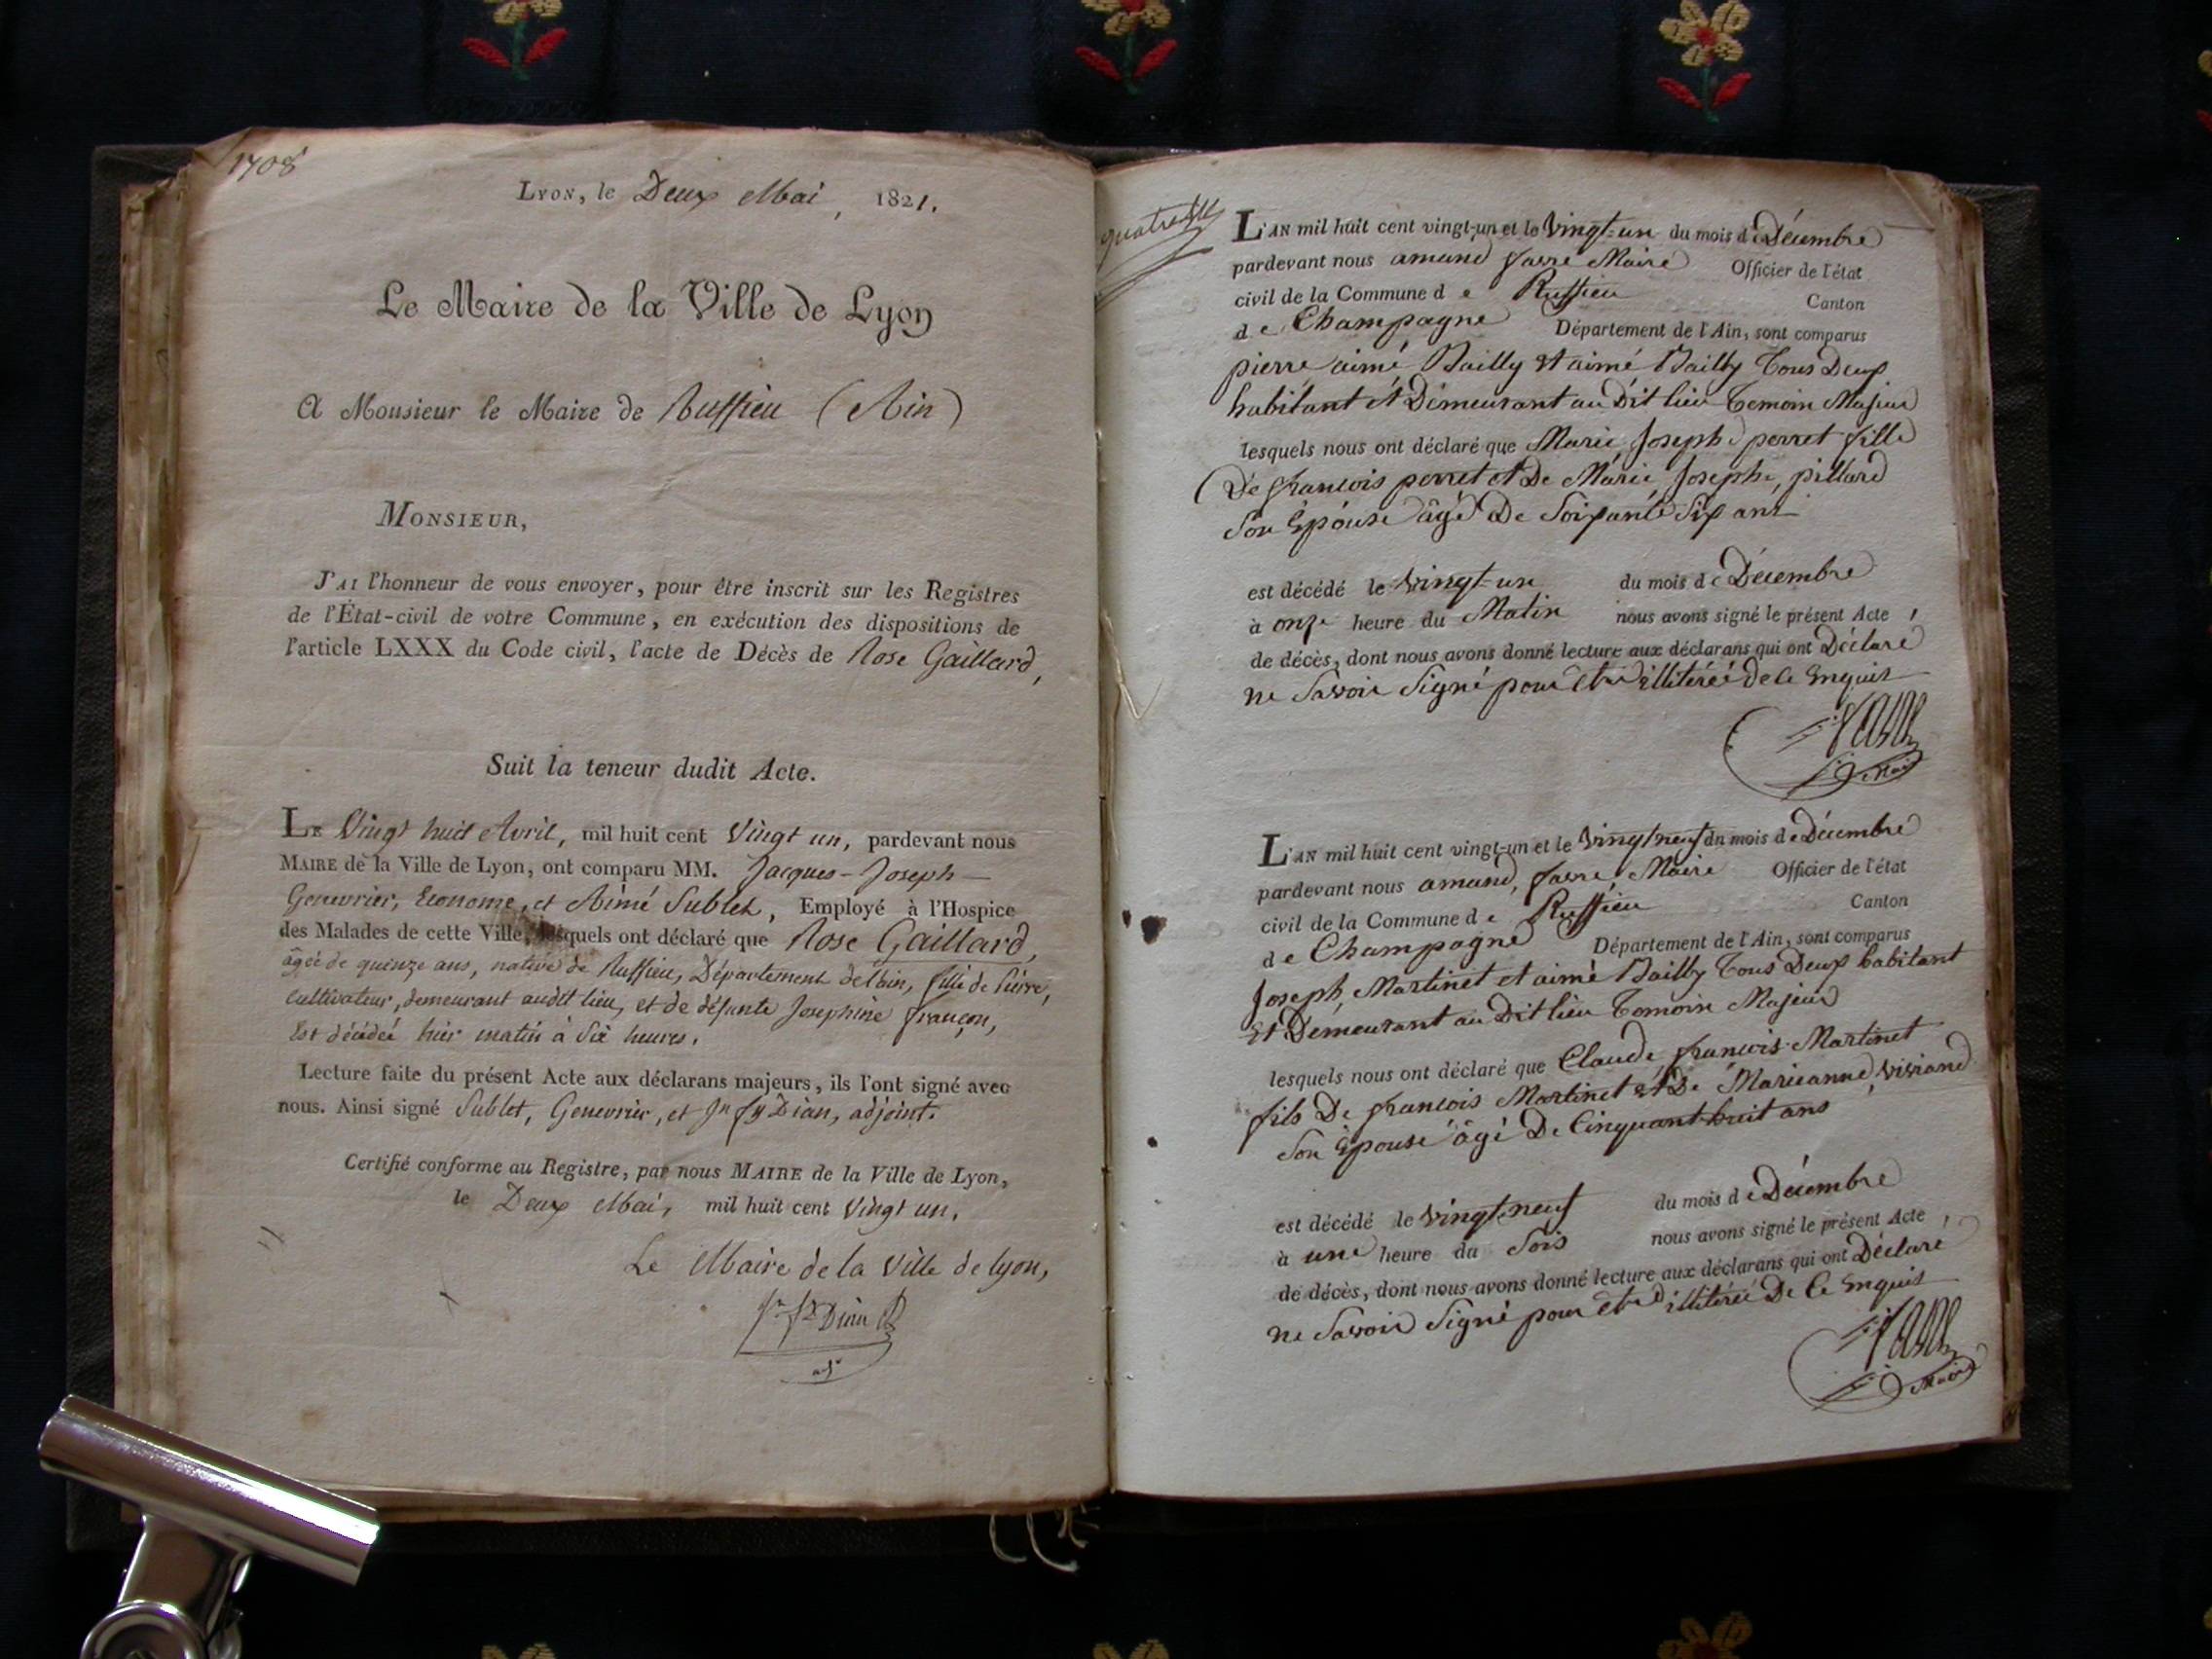 1708
Lyon, le Deux Mai, 1821.
Le Maire de la Ville de Lyon
A Monsieur le Maire de Ruffieu (Ain)
Monsieur,
J'ai l'honneur de vous envoyer, pour être inscrit sur les Registres
de l'État-civil de votre Commune, en exécution des dispositions de
l'article LXXX du Code civil, l'acte de Décès de Rose Gaillard,
Suit la teneur dudit Acte.
Le Vingt huit Avril, mil huit cent Vingt un, pardevant nous
Maire de la Ville de Lyon, ont comparu MM. Jacques-Joseph-
Genevrier, Econome, et Aimé Sublet, Employé à l'Hospice
des Malades de cette Ville, lesquels ont déclaré que Rose Gaillard,
âgée de quinze ans, native de Ruffieu, Département de l'ain, fille de Pierre,
cultivateur, demeurant audit lieu, et de défunte Josephine françon,
Est décédée hier matin à Six heures.
Lecture faite du présent Acte aux déclarans majeurs, ils l'ont signé avec
nous. Ainsi signé Sublet, Genevrier, et Jn fs Dian, adjoint.
Certifié conforme au Registre, par nous Maire de la Ville de Lyon,
le Deux Mai, mil huit cent Vingt un.
Le Maire de la Ville de Lyon,
Dian
adj
L'an mil huit cent vingt-un et le Vingt-un du mois de Décembre
pardevant nous amand favre Maire Officier de l'état
civil de la Commune de Ruffieu Canton
de Champagne Département de l'Ain, sont comparus
pierre aimé Bailly et aimé Bailly Tous Deux
habitant et Démeurant au Dit lieu Temoin Majeur
lesquels nous ont déclaré que Marie Joseph perret fille
De francois perret et De Marie Josephe pillard
Son Epouse âgé De Soixante Six ans
est décédé le vingt-un du mois de Décembre
à onze heure du Matin nous avons signé le présent Acte
de décès, dont nous avons donné lecture aux déclarans qui ont Déclaré
ne Savoir Signé pour etre illitéréé de ce Enquis
favre
Maire
L'an mil huit cent vingt-un et le Vingt neuf du mois de Décembre
pardevant nous amand, favre, Maire Officier de l'état
civil de la Commune de Ruffieu Canton
de Champagne Département de l'Ain, sont comparus
Joseph Martinet et aimé Bailly Tous Deux habitant
Et Démeurant au Dit lieu Temoin Majeur
lesquels nous ont déclaré que Claude francois Martinet
fils De francois Martinet et De Marieanne viviand
Son Epouse âgé De Cinquant huit ans
est décédé le vingt neuf du mois de Décembre
à une heure du Soir nous avons signé le présent Acte
de décès, dont nous avons donné lecture aux déclarans qui ont Déclaré
ne Savoir Signé pour etre illitéréé De Ce Enquis
favre
Maire